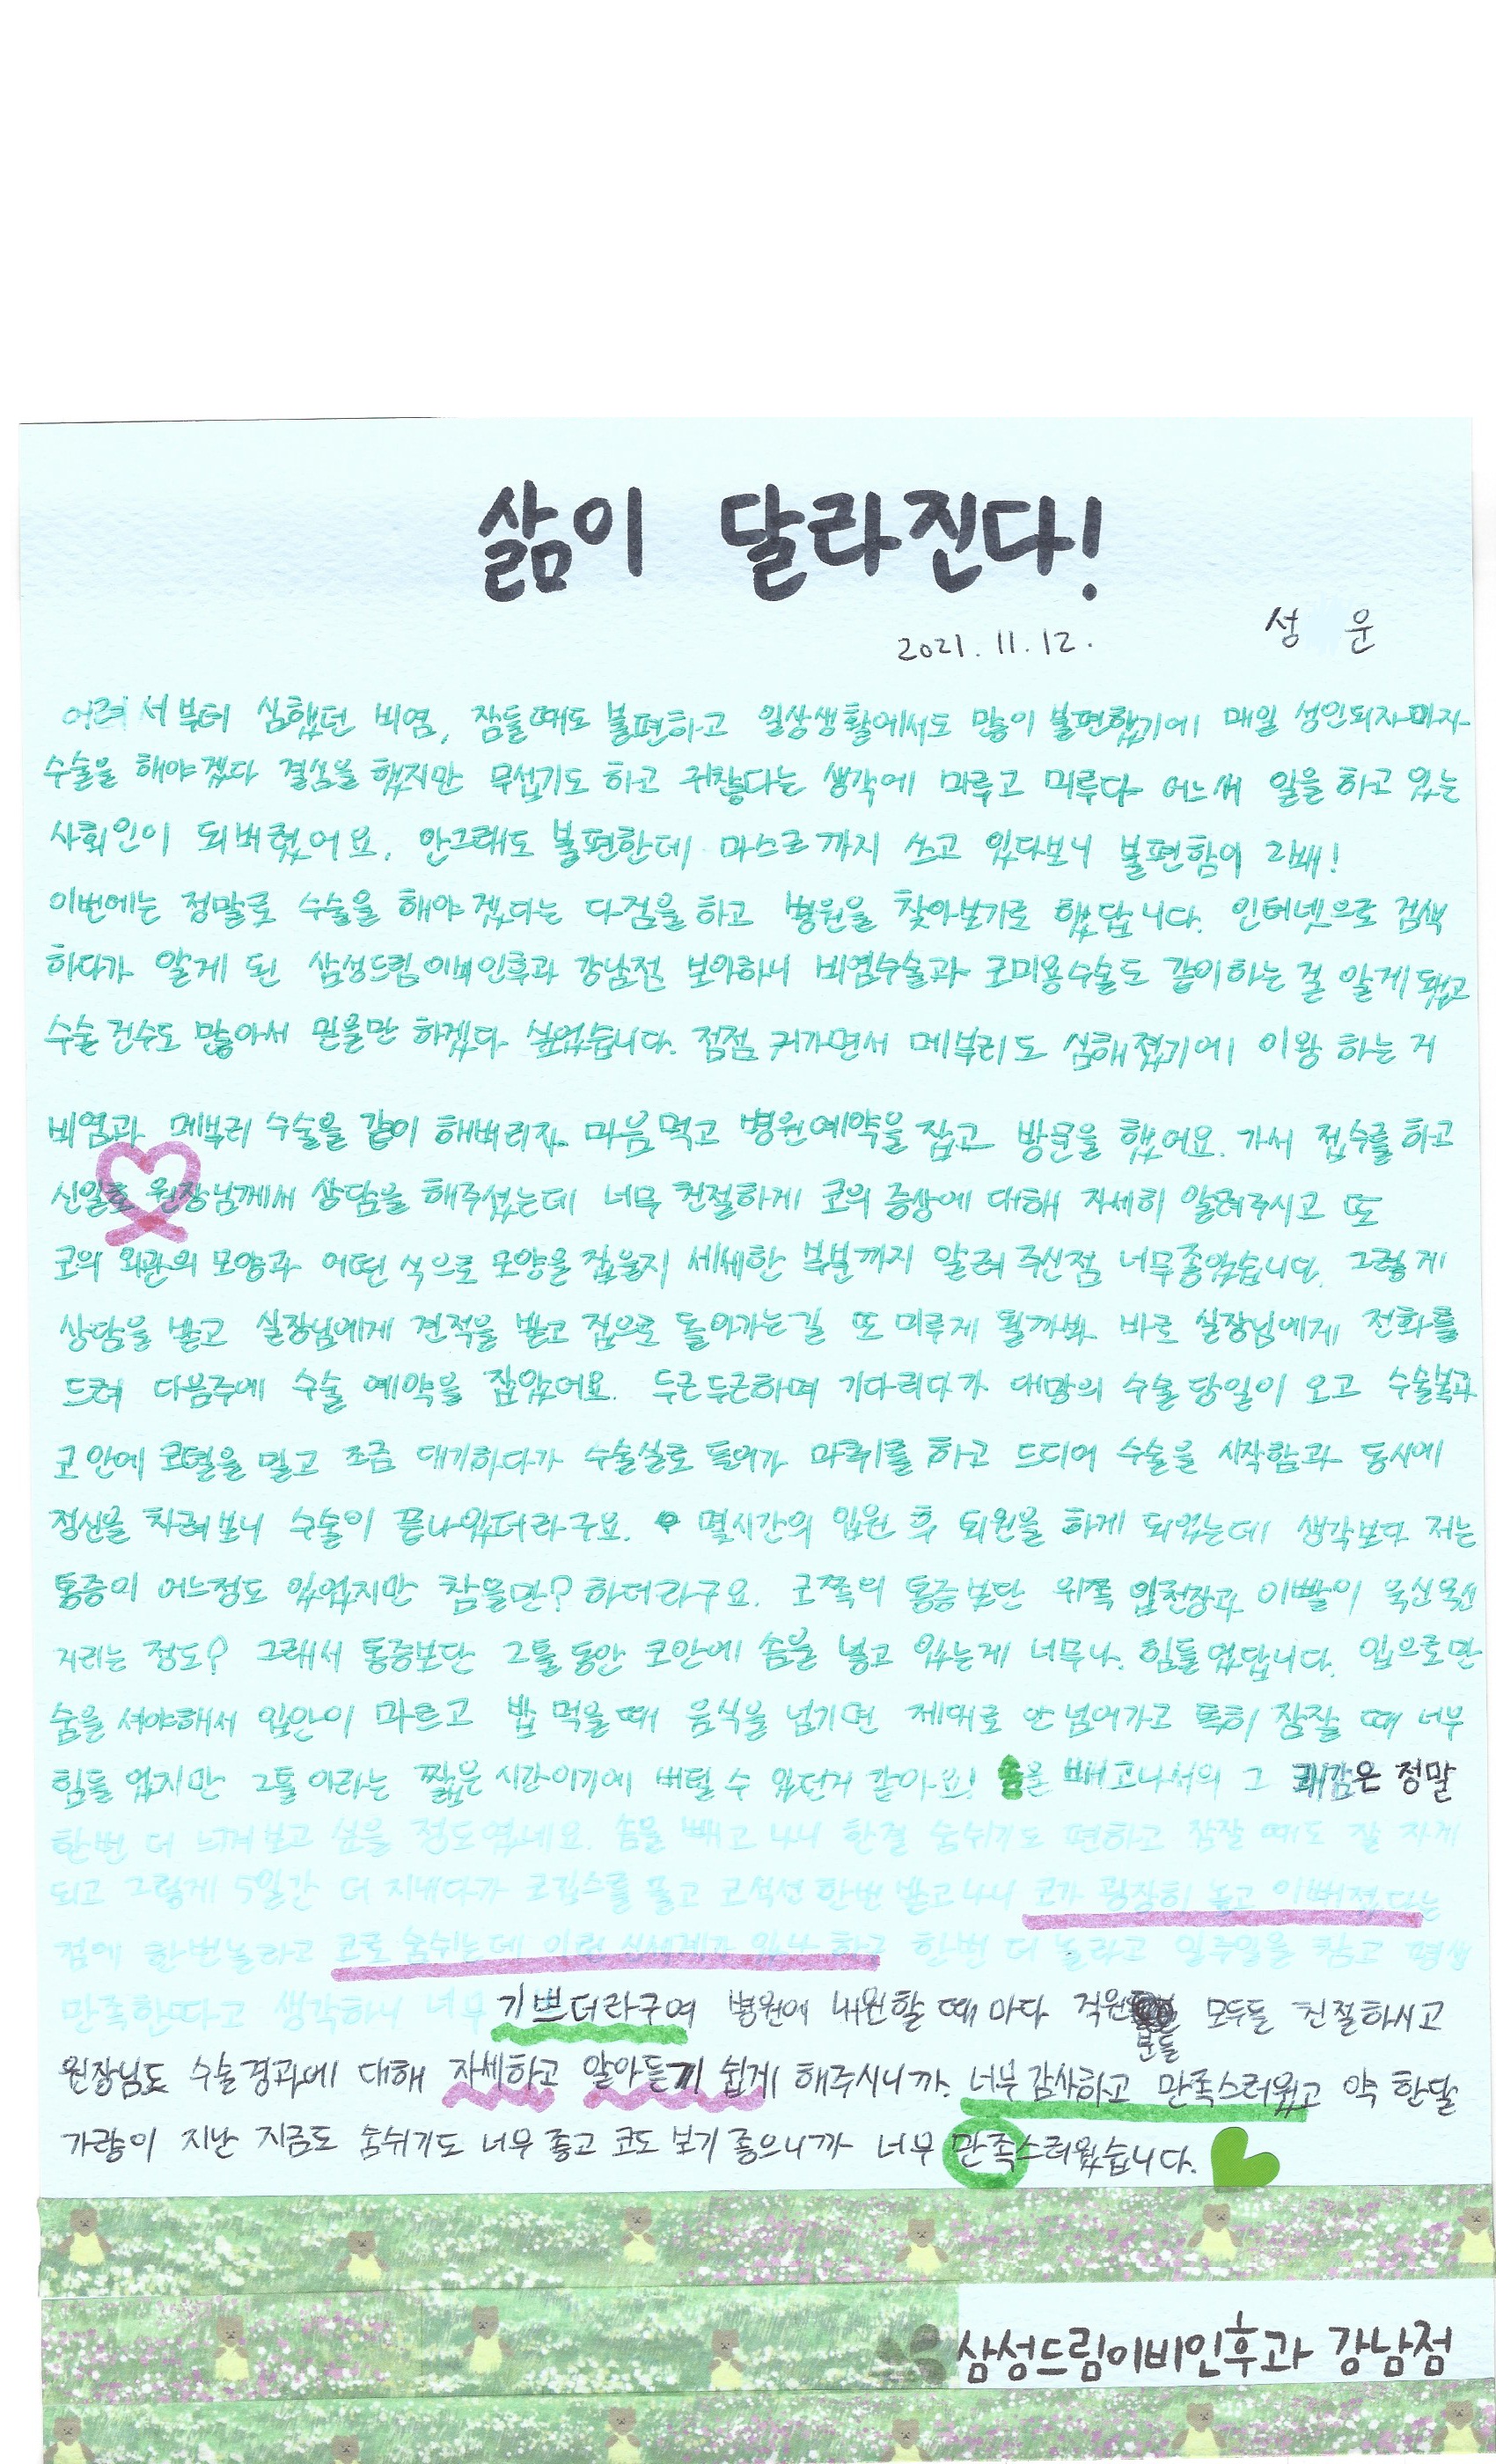 삶이 달라진다!
2021. 11. 12. 성 운
어려서부터 심했던 비염, 잠들때도 불편하고 일상생활에서도 많이 불편했기에 매일 성인되자마자
수술을 해야겠다 결심을 했지만 무섭기도 하고 귀찮다는 생각에 미루고 미루다 어느새 일을 하고 있는
사회인이 되버렸어요. 안그래도 불편한데 마스크까지 쓰고 있다보니 불편함이 2배!
이번에는 정말로 수술을 해야겠다는 다짐을 하고 병원을 찾아보기로 했답니다. 인터넷으로 검색
하다가 알게 된 삼성드림이비인후과 강남점 보아하니 비염수술과 코미용수술도 같이하는 걸 알게됐고
수술 건수도 많아서 믿을만 하겠다 싶었습니다. 점점 커가면서 메부리도 심해졌기에 이왕 하는 거
비염과 메부리 수술을 같이 해버리자 마음먹고 병원예약을 잡고 방문을 했어요. 가서 접수를 하고
신일호 원장님께서 상담을 해주셨는데 너무 친절하게 코의 증상에 대해 자세히 알려주시고 또
코의 외관의 모양과 어떤 식으로 모양을 잡을지 세세한 부분까지 알려 주신점 너무좋았습니다. 그렇게
상담을 받고 실장님에게 견적을 받고 집으로 돌아가는길 또 미루게 될까봐 바로 실장님에게 전화를
드려 다음주에 수술 예약을 잡았어요. 두근두근하며 기다리다가 대망의 수술 당일이 오고 수술복과
코 안에 코털을 밀고 조금 대기하다가 수술실로 들어가 마취를 하고 드디어 수술을 시작함과 동시에
정신을 차려보니 수술이 끝나있더라구요. 몇시간의 입원 후 퇴원을 하게 되었는데 생각보다 저는
통증이 어느정도 있었지만 참을만? 하더라구요. 코쪽의 통증보단 위쪽 입천장과 이빨이 욱신욱신
거리는 정도? 그래서 통증보단 2틀 동안 코안에 솜을 넣고 있는게 너무나 힘들었답니다. 입으로만
숨을 셔야해서 입안이 마르고 밥 먹을때 음식을 넘기면 제대로 안넘어가고 특히 잠잘 때 너무
힘들었지만 2틀이라는 짧은 시간이기에 버틸 수 있던거 같아요! 솜을 빼고나서의 그 쾌감은 정말
한번 더 느껴보고 싶을 정도였네요. 솜을 빼고 나니 한결 숨쉬기도 편하고 잠잘 때도 잘 자게
되고 그렇게 5일간 더 지내다가 코깁스를 풀고 코세척 한번 받고나니 코가 굉장히 높고 이뻐졌다는
점에 한번놀라고 코로 숨쉬는데 이런 신세계가 있나 하고 한번 더 놀라고 일주일을 참고 평생
만족한다고 생각하니 너무 기쁘더라구여 병원에 내원할 때 마다 직원분들 모두들 친절하시고
원장님도 수술경과에 대해 자세하고 알아듣기 쉽게 해주시니까. 너무 감사하고 만족스러웠고 약 한달
가량이 지난 지금도 숨쉬기도 너무 좋고 코도 보기 좋으니까 너무 만족스러웠습니다.
삼성드림이비인후과 강남점